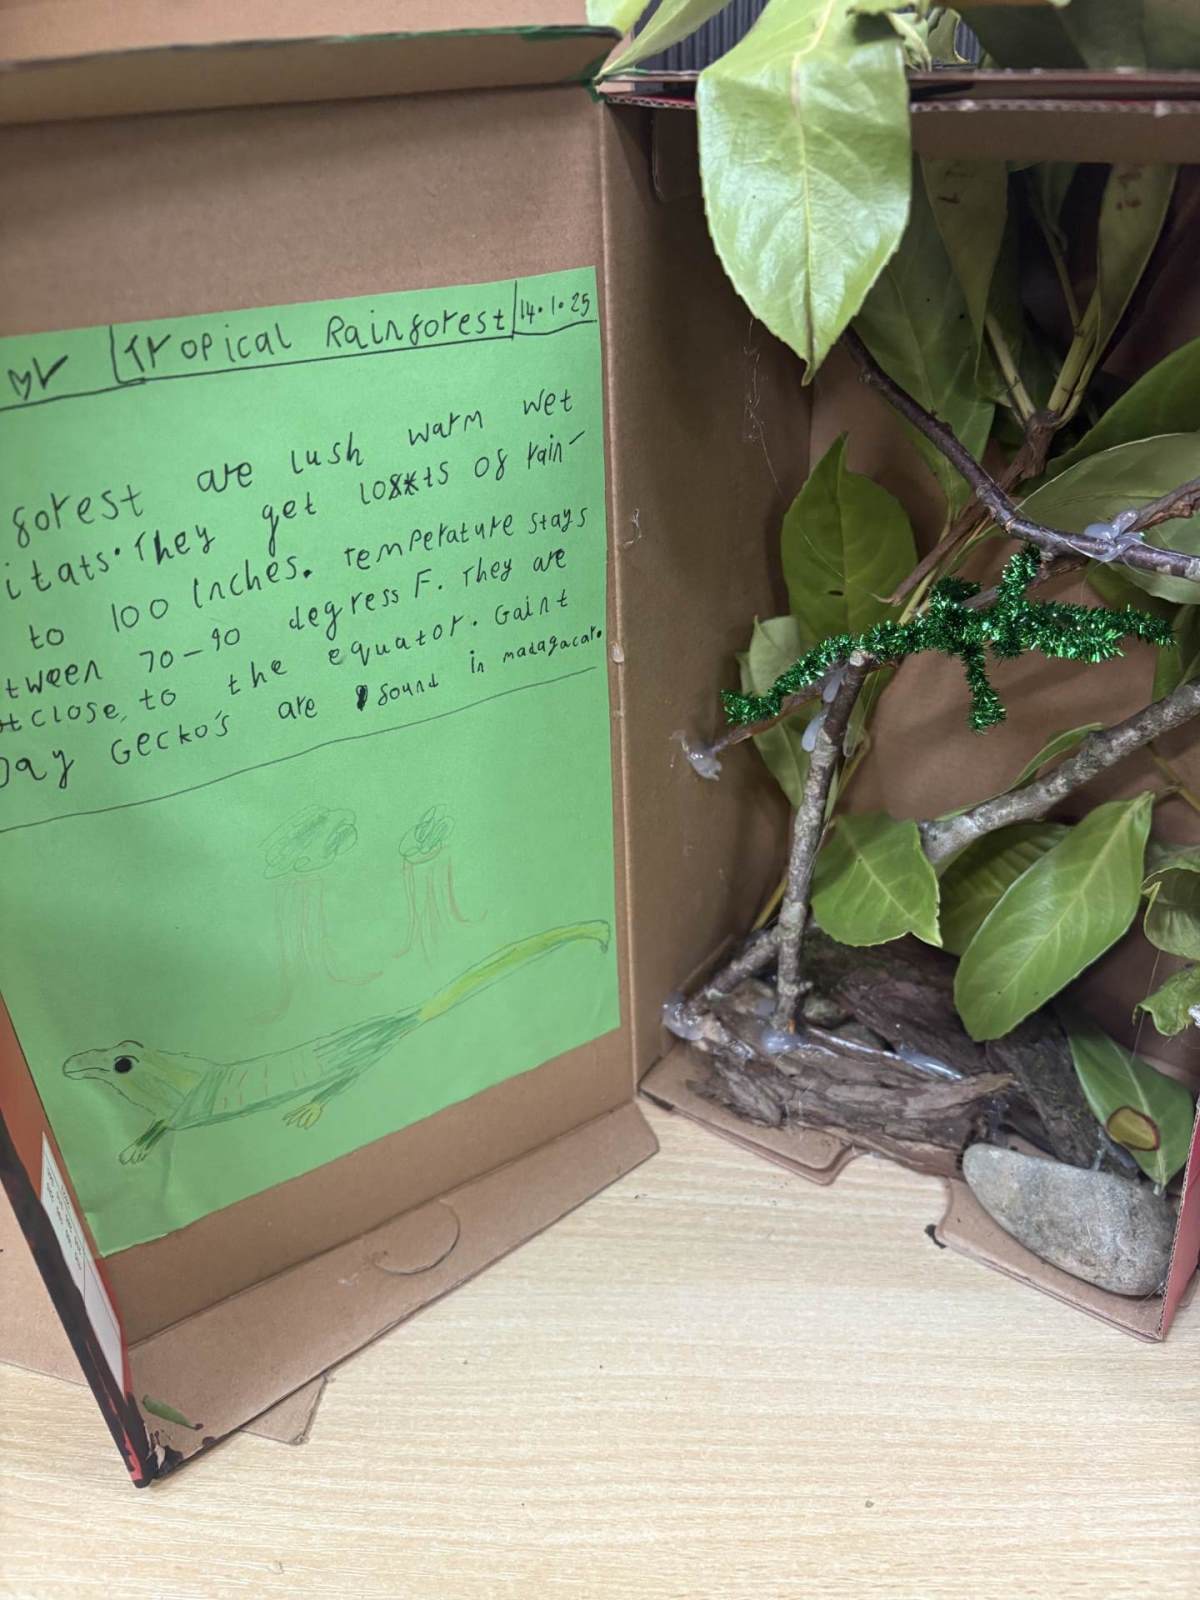 Tropical Rainforest 14.1.25
forest are lush warm wet
itats. They get lots of rain-
to 100 inches. Temperature stays
tween 70-90 degress F. They are
close to the equator. Gaint
Day Gecko's are found in madagacar.